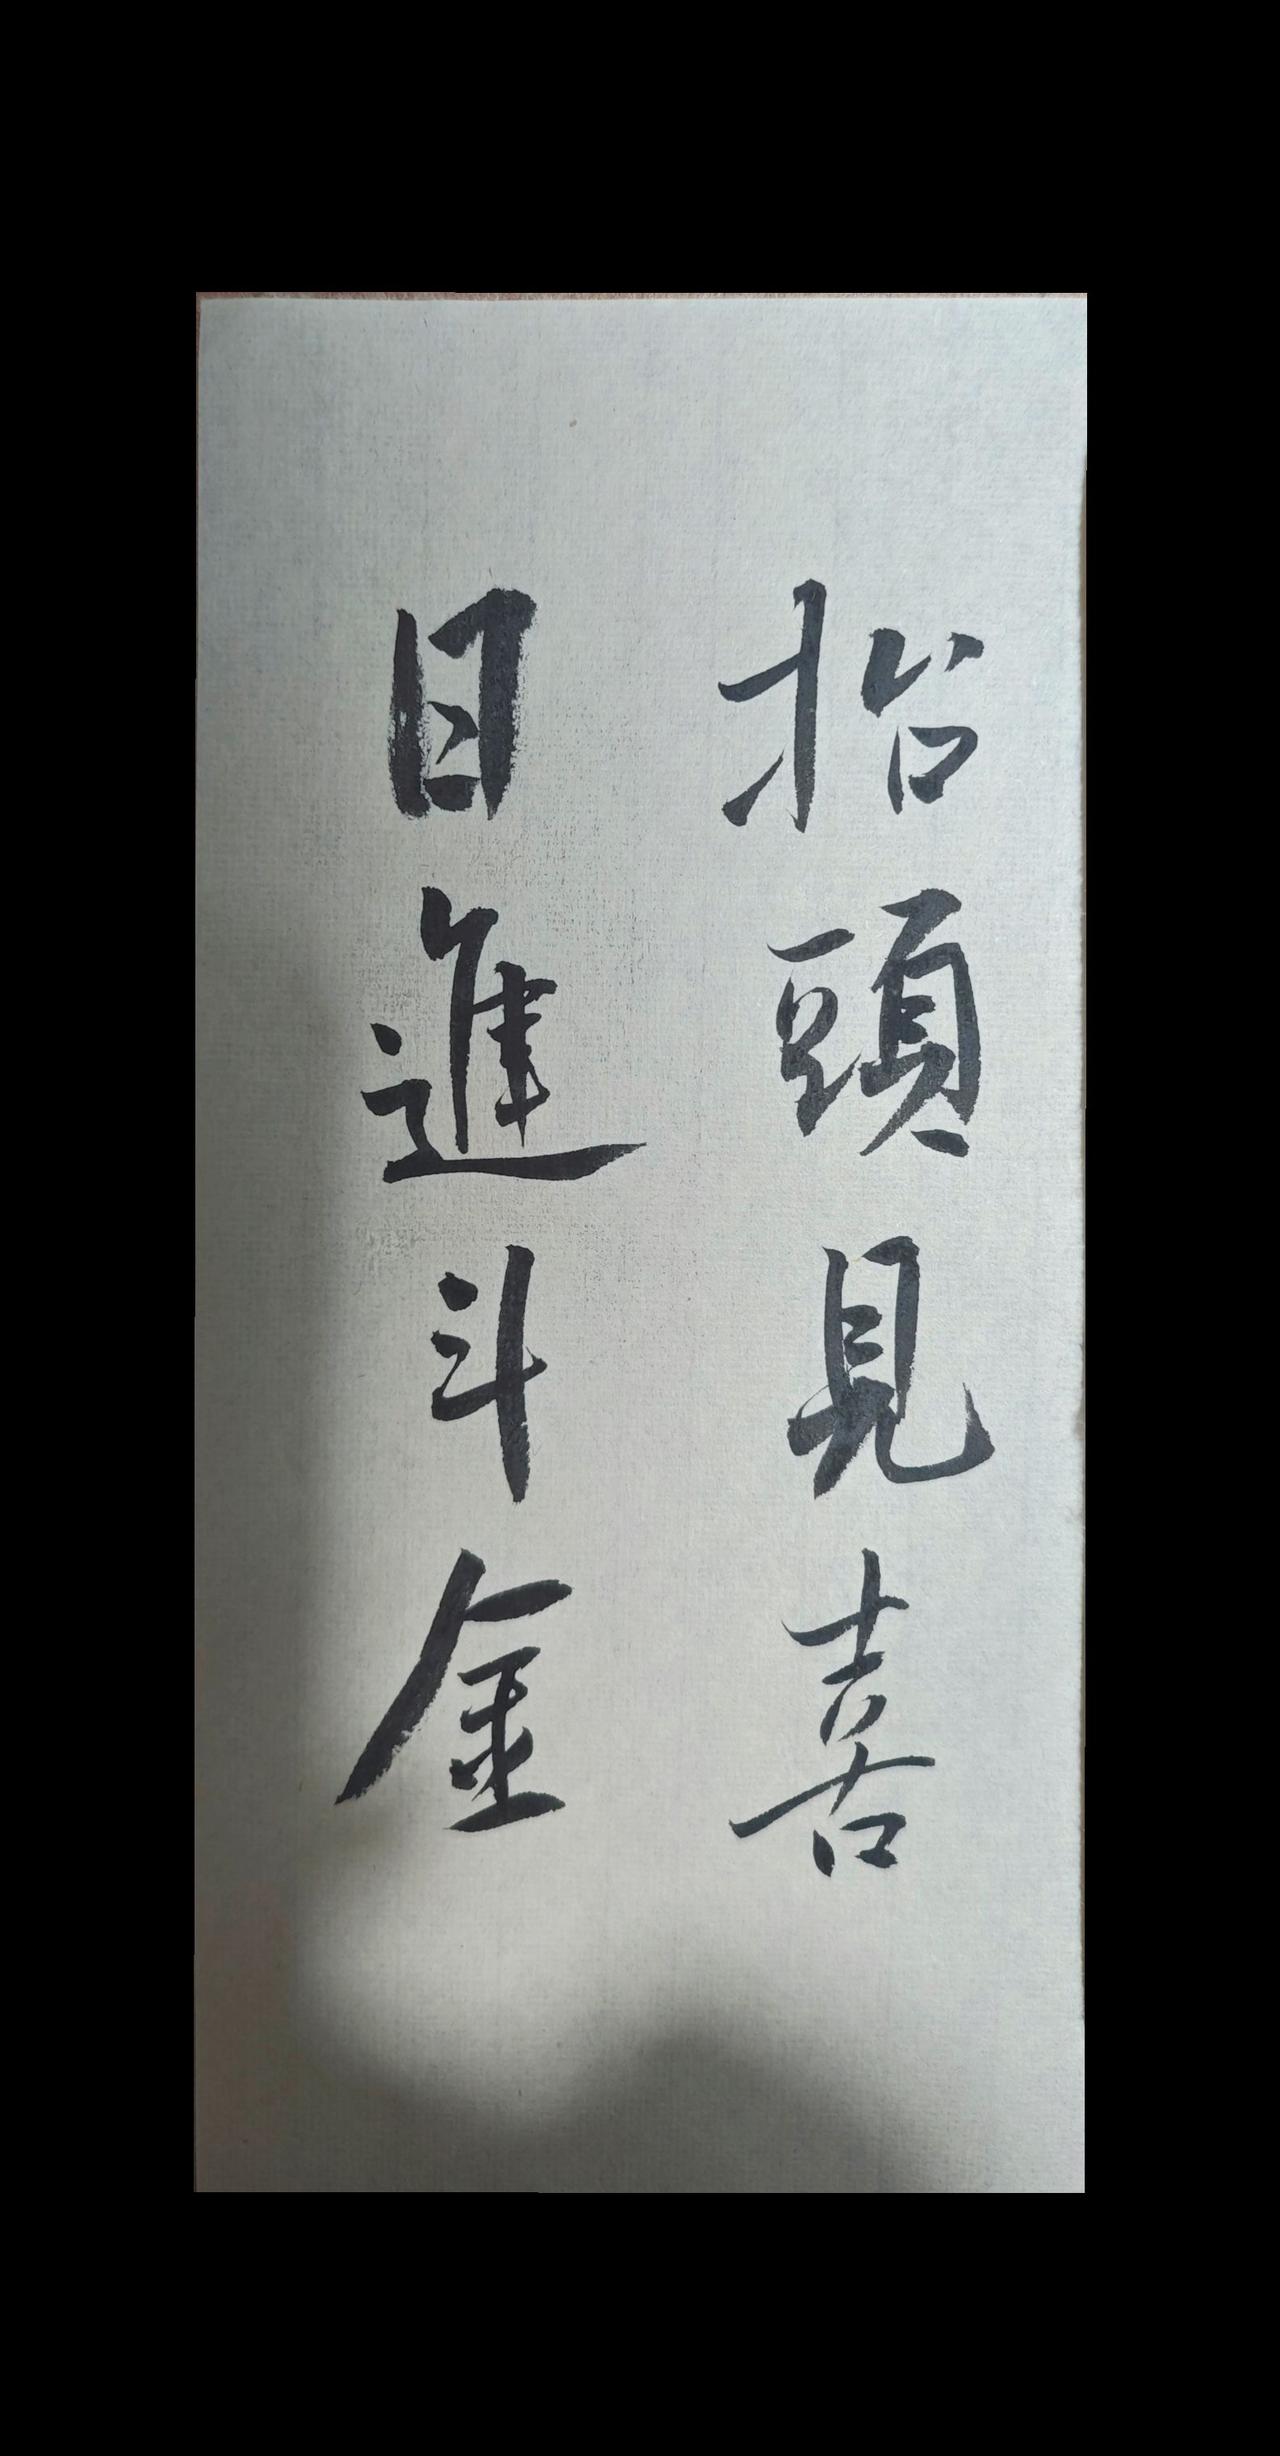 抬頭見喜
日進斗金